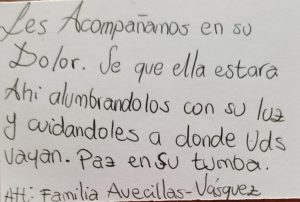 Les Acompañamos en su
Dolor. Se que ella estara
Ahi alumbrandolos con su luz
y cuidandoles a donde Uds
vayan. Paz en su tumba.
Att: Familia Avecillas-Vásquez